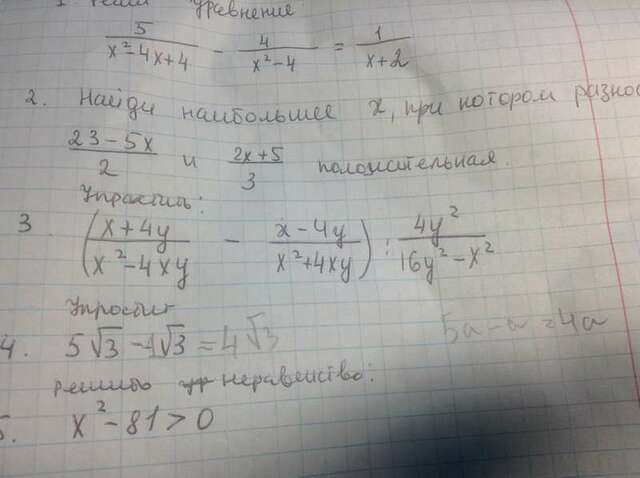 1. Реши уравнение
5/(x²-4x+4) - 4/(x²-4) = 1/(x+2)
2. Найди наибольшее x, при котором разнос
(23-5x)/2 и (2x+5)/3 положительная.
Упростить:
3. ((x+4y)/(x²-4xy) - (x-4y)/(x²+4xy)) : 4y²/(16y²-x²)
Упростит
4. 5√3 - 1√3 = 4√3 5a-a=4a
Решить неравенство:
5. x²-81>0